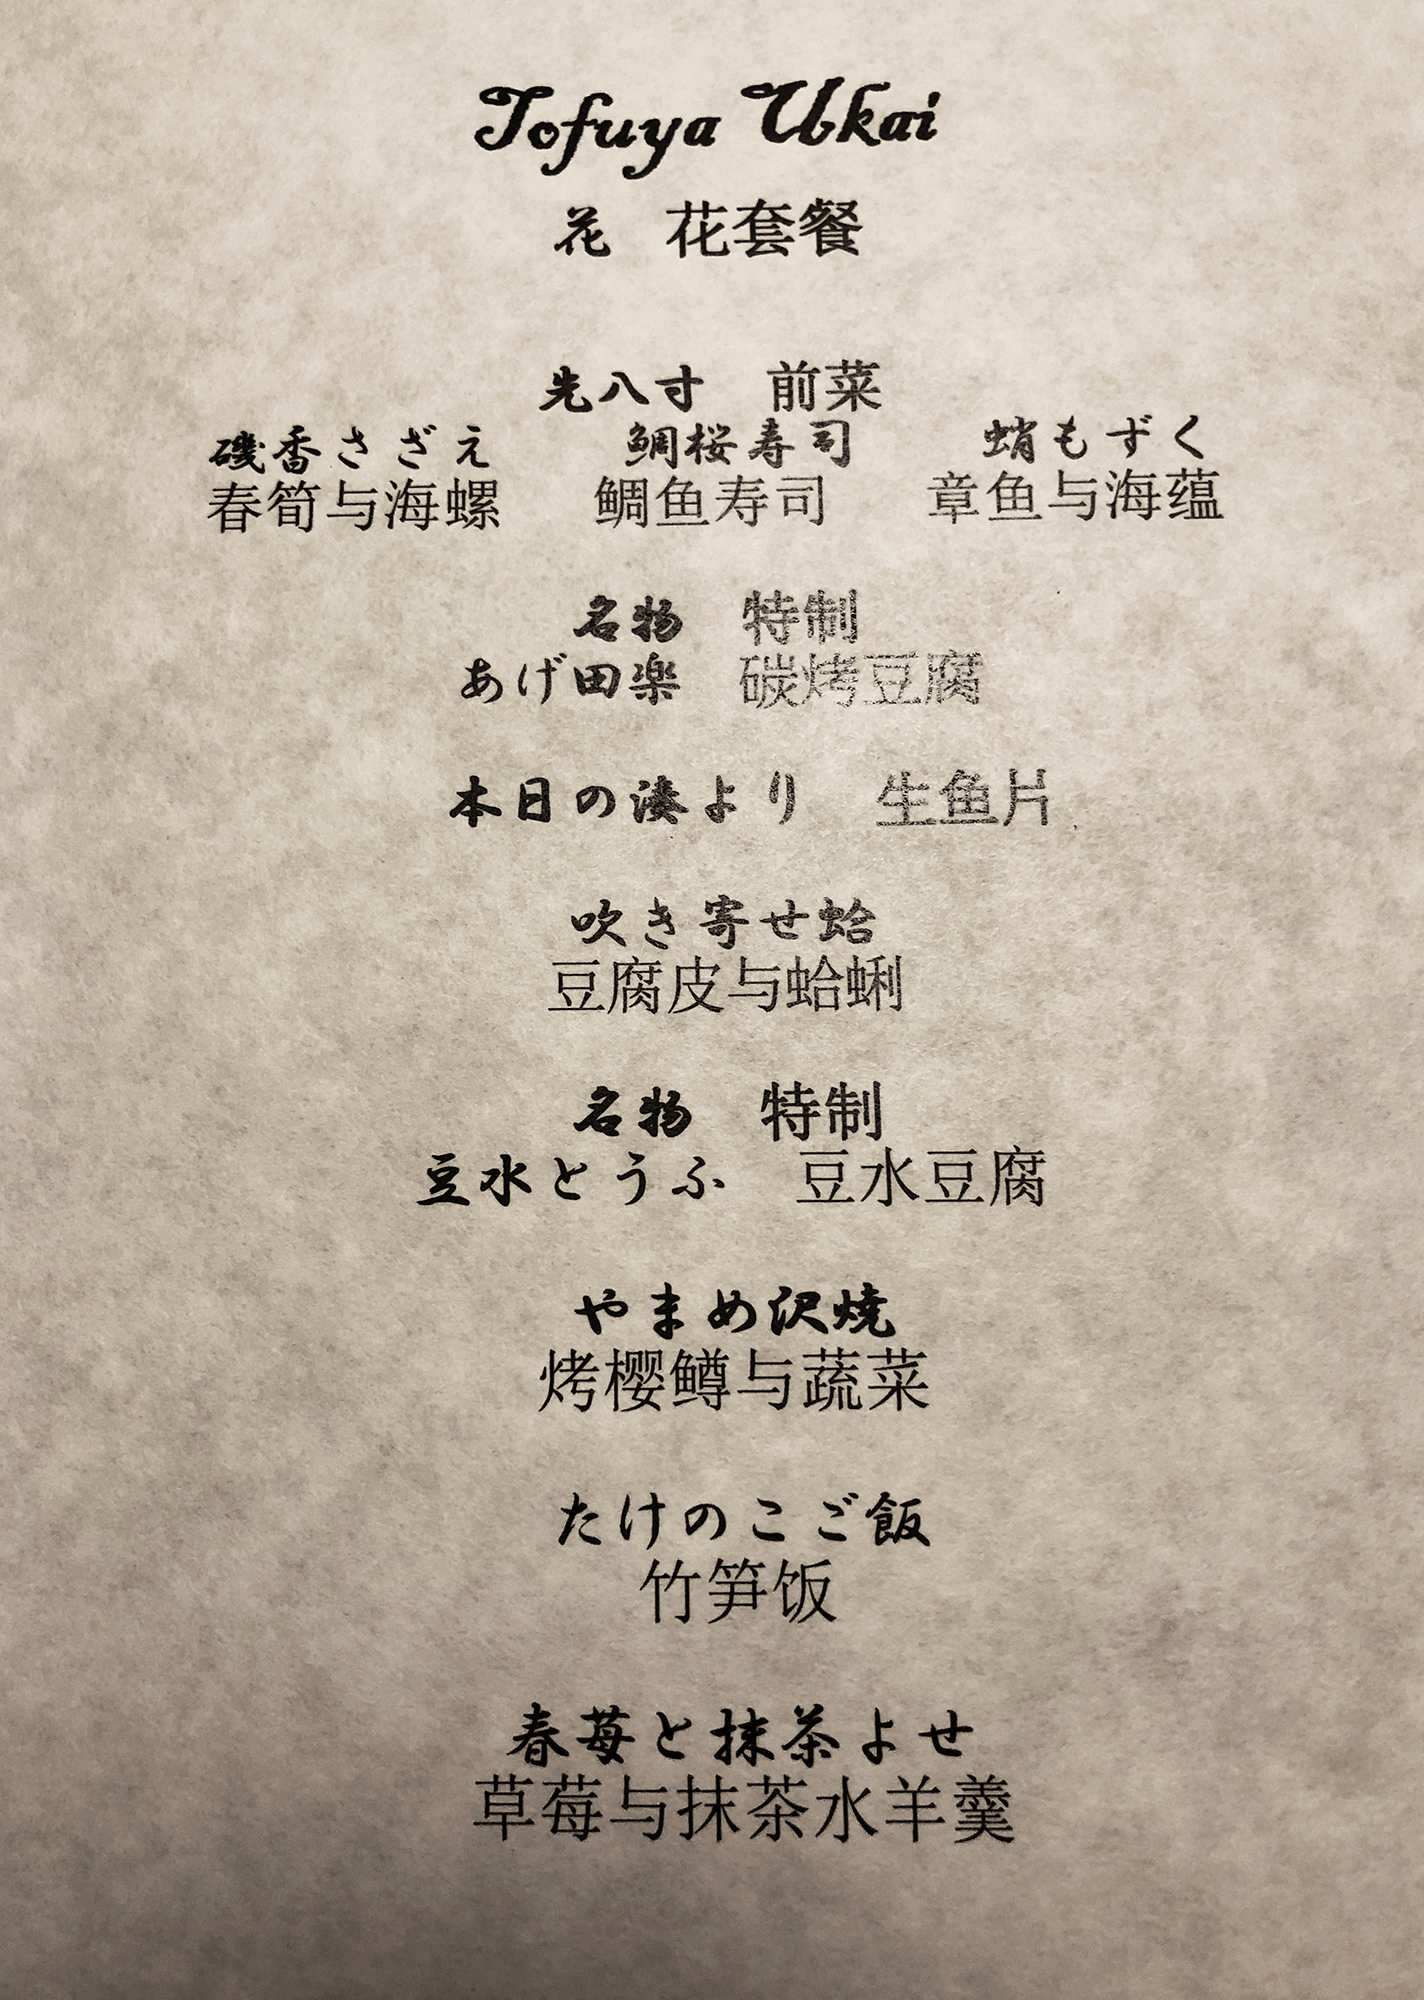 Tofuya Ukai
花 花套餐
先八寸 前菜
磯香さざえ 鯛桜寿司 蛸もずく
春筍与海螺 鲷鱼寿司 章鱼与海蕴
名物 特制
あげ田楽 碳烤豆腐
本日の湊より 生鱼片
吹き寄せ蛤
豆腐皮与蛤蜊
名物 特制
豆水とうふ 豆水豆腐
やまめ沢焼
烤樱鳟与蔬菜
たけのこご飯
竹笋饭
春苺と抹茶よせ
草莓与抹茶水羊羹